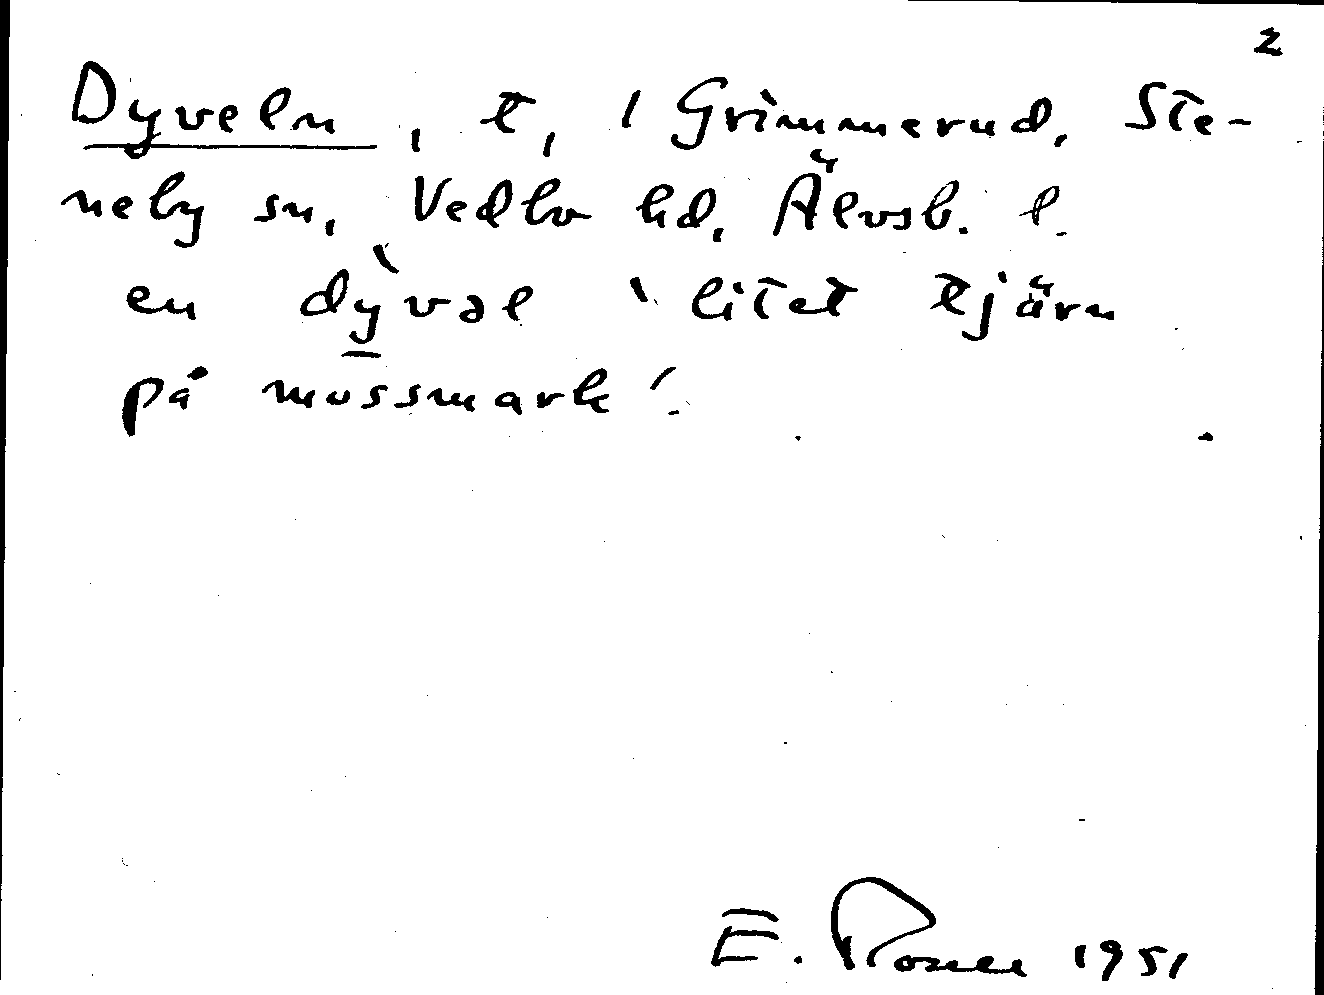 2
Dyveln, t, 1 Grimmerud, Ste-
neby sn, Vedbo hd, Älvsb. l.
en dỳvəl 'litet tjärn
på mossmark'.
E. Rosell 1951